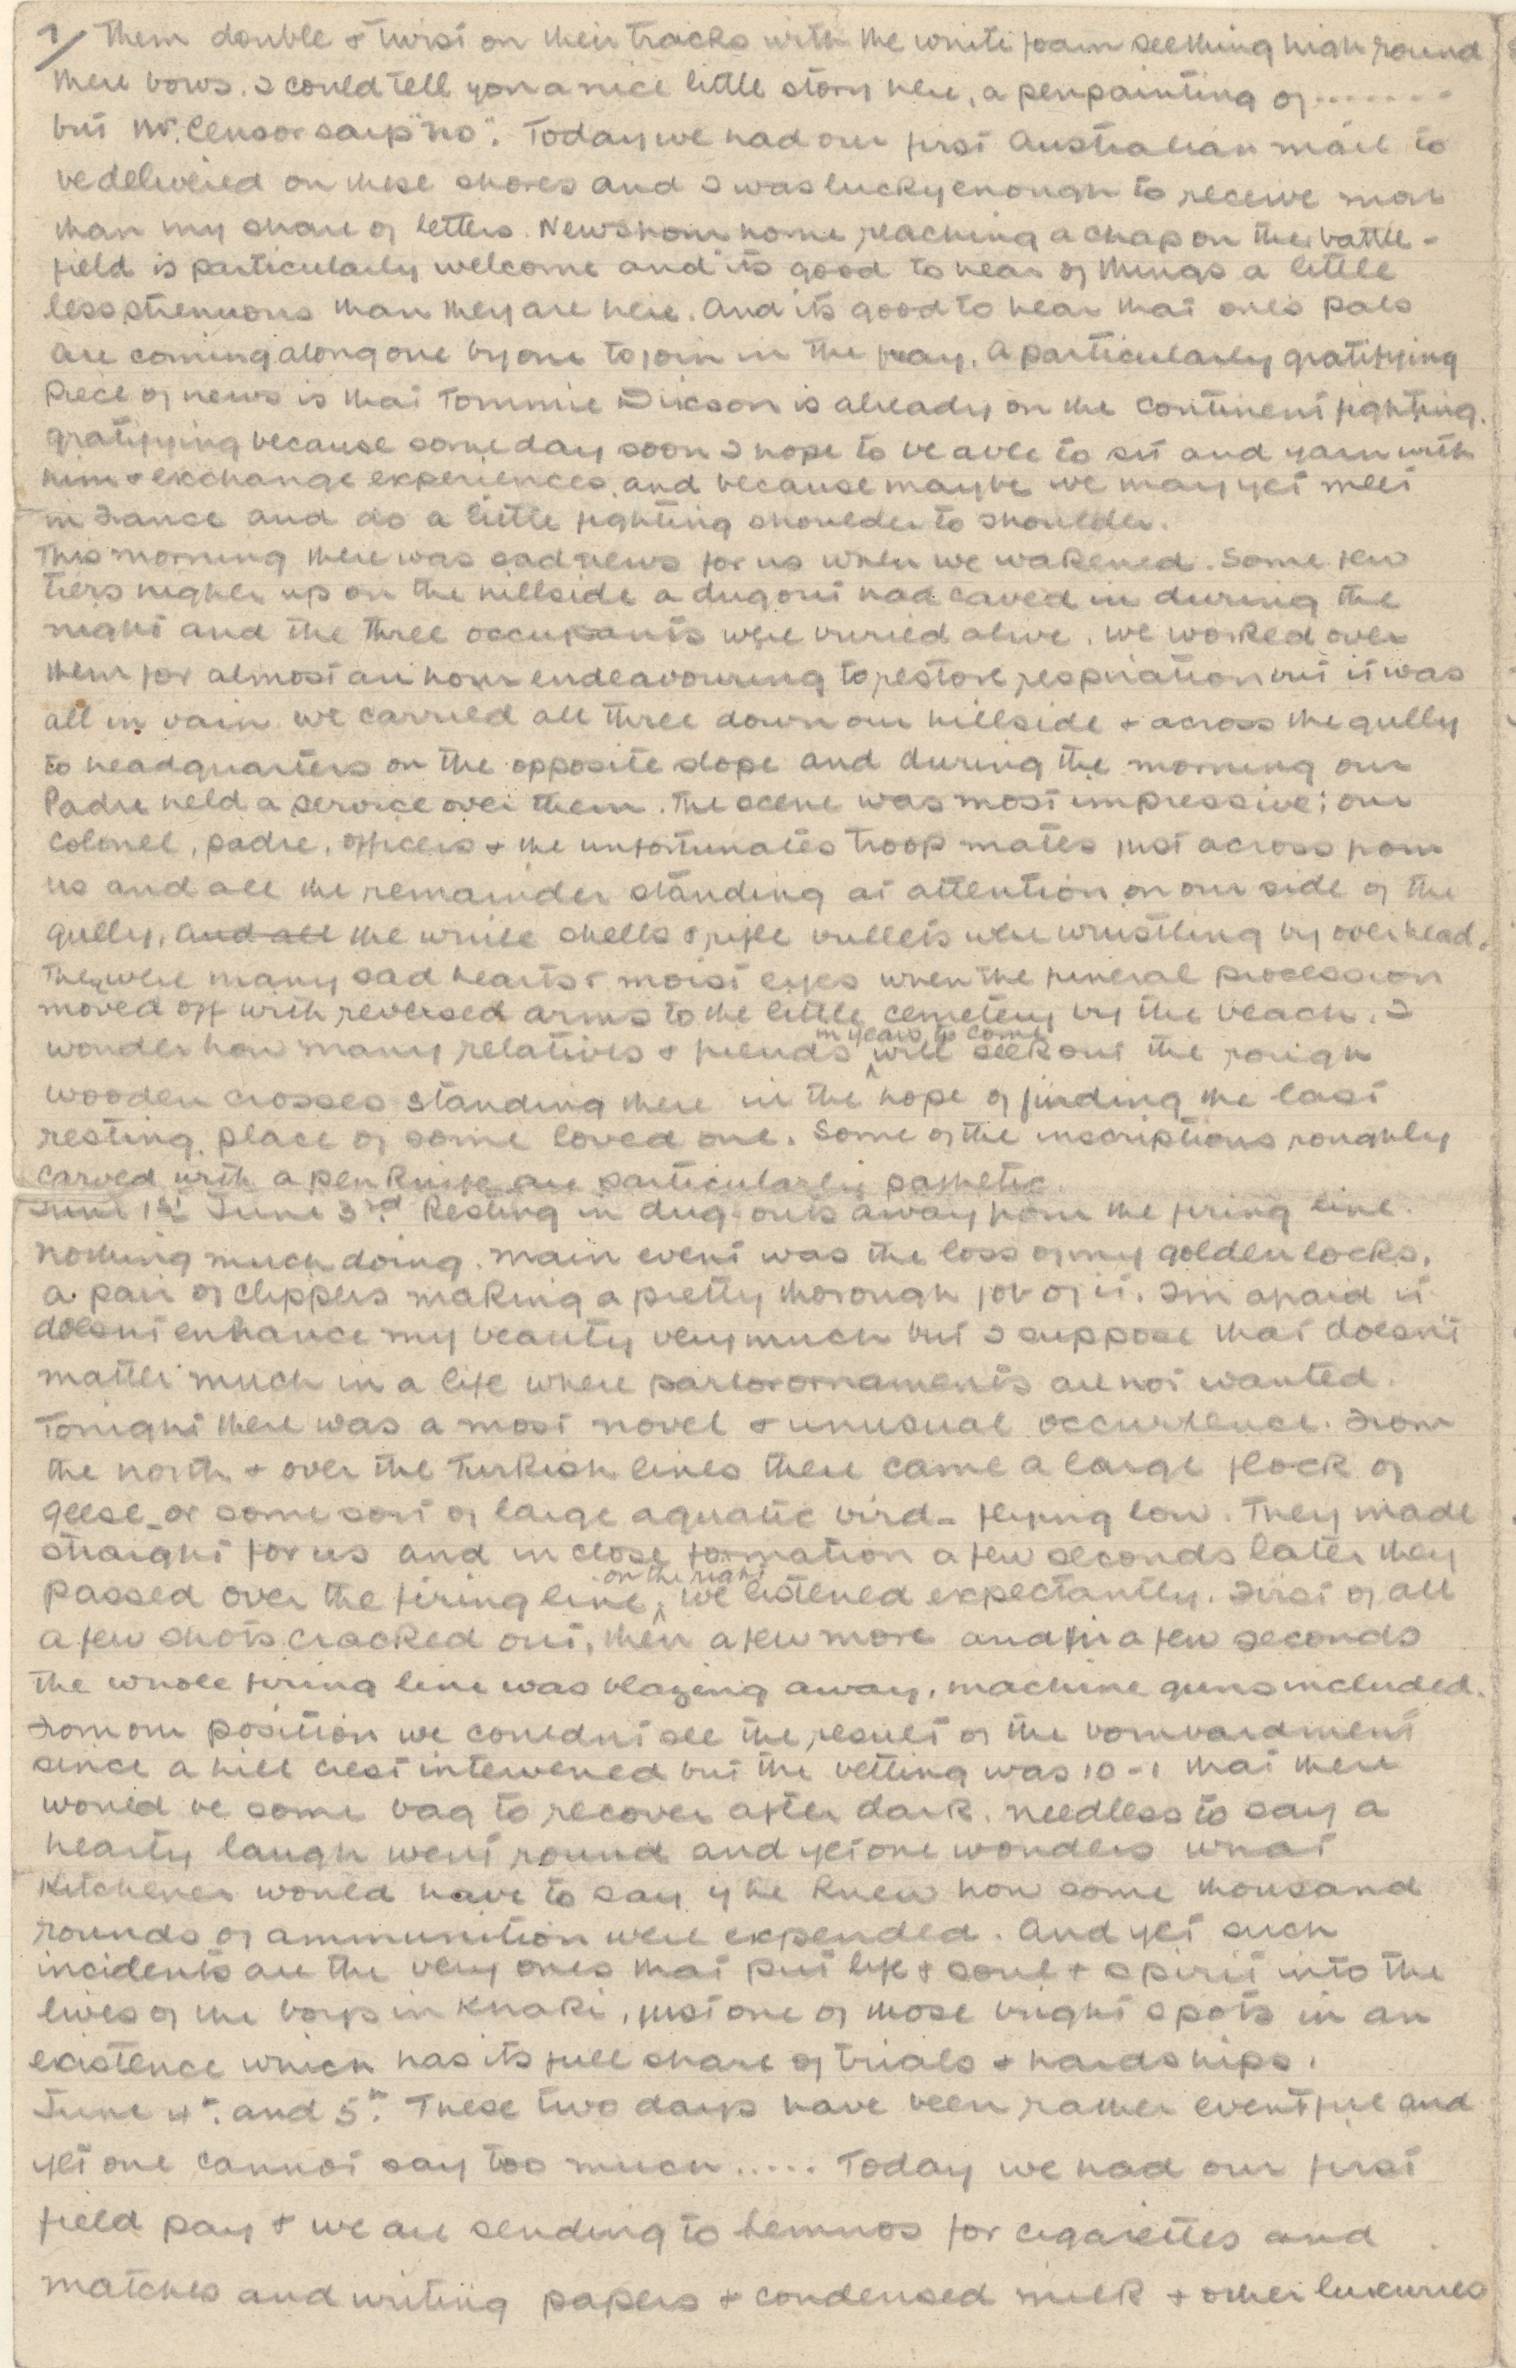 7/ them double & twist on their tracks with the white foam seething high round
there bows. I could tell you a nice little story here, a penpainting of .......
but Mr. Censor says "no". Today we had our first Australian mail to
be delivered on these shores and I was lucky enough to receive more
than my share of letters. News from home reaching a chap on the battle-
field is particularly welcome and its good to hear of things a little
less strenuous than they are here. And its good to hear that one's pals
are coming along one by one to join in the fray. A particularly gratifying
piece of news is that Tommie Dickson is already on the continent fighting.
gratifying because some day soon I hope to be able to sit and yarn with
him & exchange experiences, and because maybe we may yet meet
in France and do a little fighting shoulder to shoulder.
This morning there was sad news for us when we wakened. Some few
tiers higher up on the hillside a dugout had caved in during the
night and the three occupants were buried alive. We worked over
them for almost an hour endeavouring to restore respiration but it was
all in vain. We carried all three down our hillside & across the gully
to headquarters on the opposite slope and during the morning our
Padre held a service over them. The scene was most impressive; our
colonel, padre, officers & the unfortunates troop mates just across from
us and all the remainder standing at attention on our side of the
gully, and all the while shells & rifle bullets were whistling by overhead.
They were many sad hearts & moist eyes when the funeral procession
moved off with reversed arms to the little cemetery by the beach. I
wonder how many relatives & friends in years to come will seek out the rough
wooden crosses standing there in the hope of finding the last
resting place of some loved one. Some of the inscriptions roughly
carved with a pen knife are particularly pathetic.
June 1st June 3rd. Resting in dug-outs away from the firing line.
Nothing much doing. Main event was the loss of my golden locks,
a pair of clippers making a pretty thorough job of it. I'm afraid it
doesn't enhance my beauty very much but I suppose that doesn't
matter much in a life where parlor ornaments are not wanted.
Tonight there was a most novel & unusual occurrence. From
the north & over the Turkish lines there came a large flock of
geese - or some sort of large aquatic bird - flying low. They made
straight for us and in close formation a few seconds later they
passed over the firing line on the right. We listened expectantly. First of all
a few shots cracked out, then a few more and in a few seconds
the whole firing line was blazing away, machine guns included.
From our position we couldn't see the result of the bombardment
since a hill crest intervened but the betting was 10-1 that there
would be some bag to recover after dark. Needless to say a
hearty laugh went round and yet one wonders what
Kitchener would have to say if he knew how some thousand
rounds of ammunition were expended. And yet such
incidents are the very ones that put life & soul & spirit into the
lives of the boys in Khaki, just one of those bright spots in an
existence which has its full share of trials & hardships.
June 4th. and 5th. These two days have been rather eventful and
yet one cannot say too much ..... Today we had our first
field pay & we are sending to Lemnos for cigarettes and
matches and writing papers & condensed milk & other luxuries